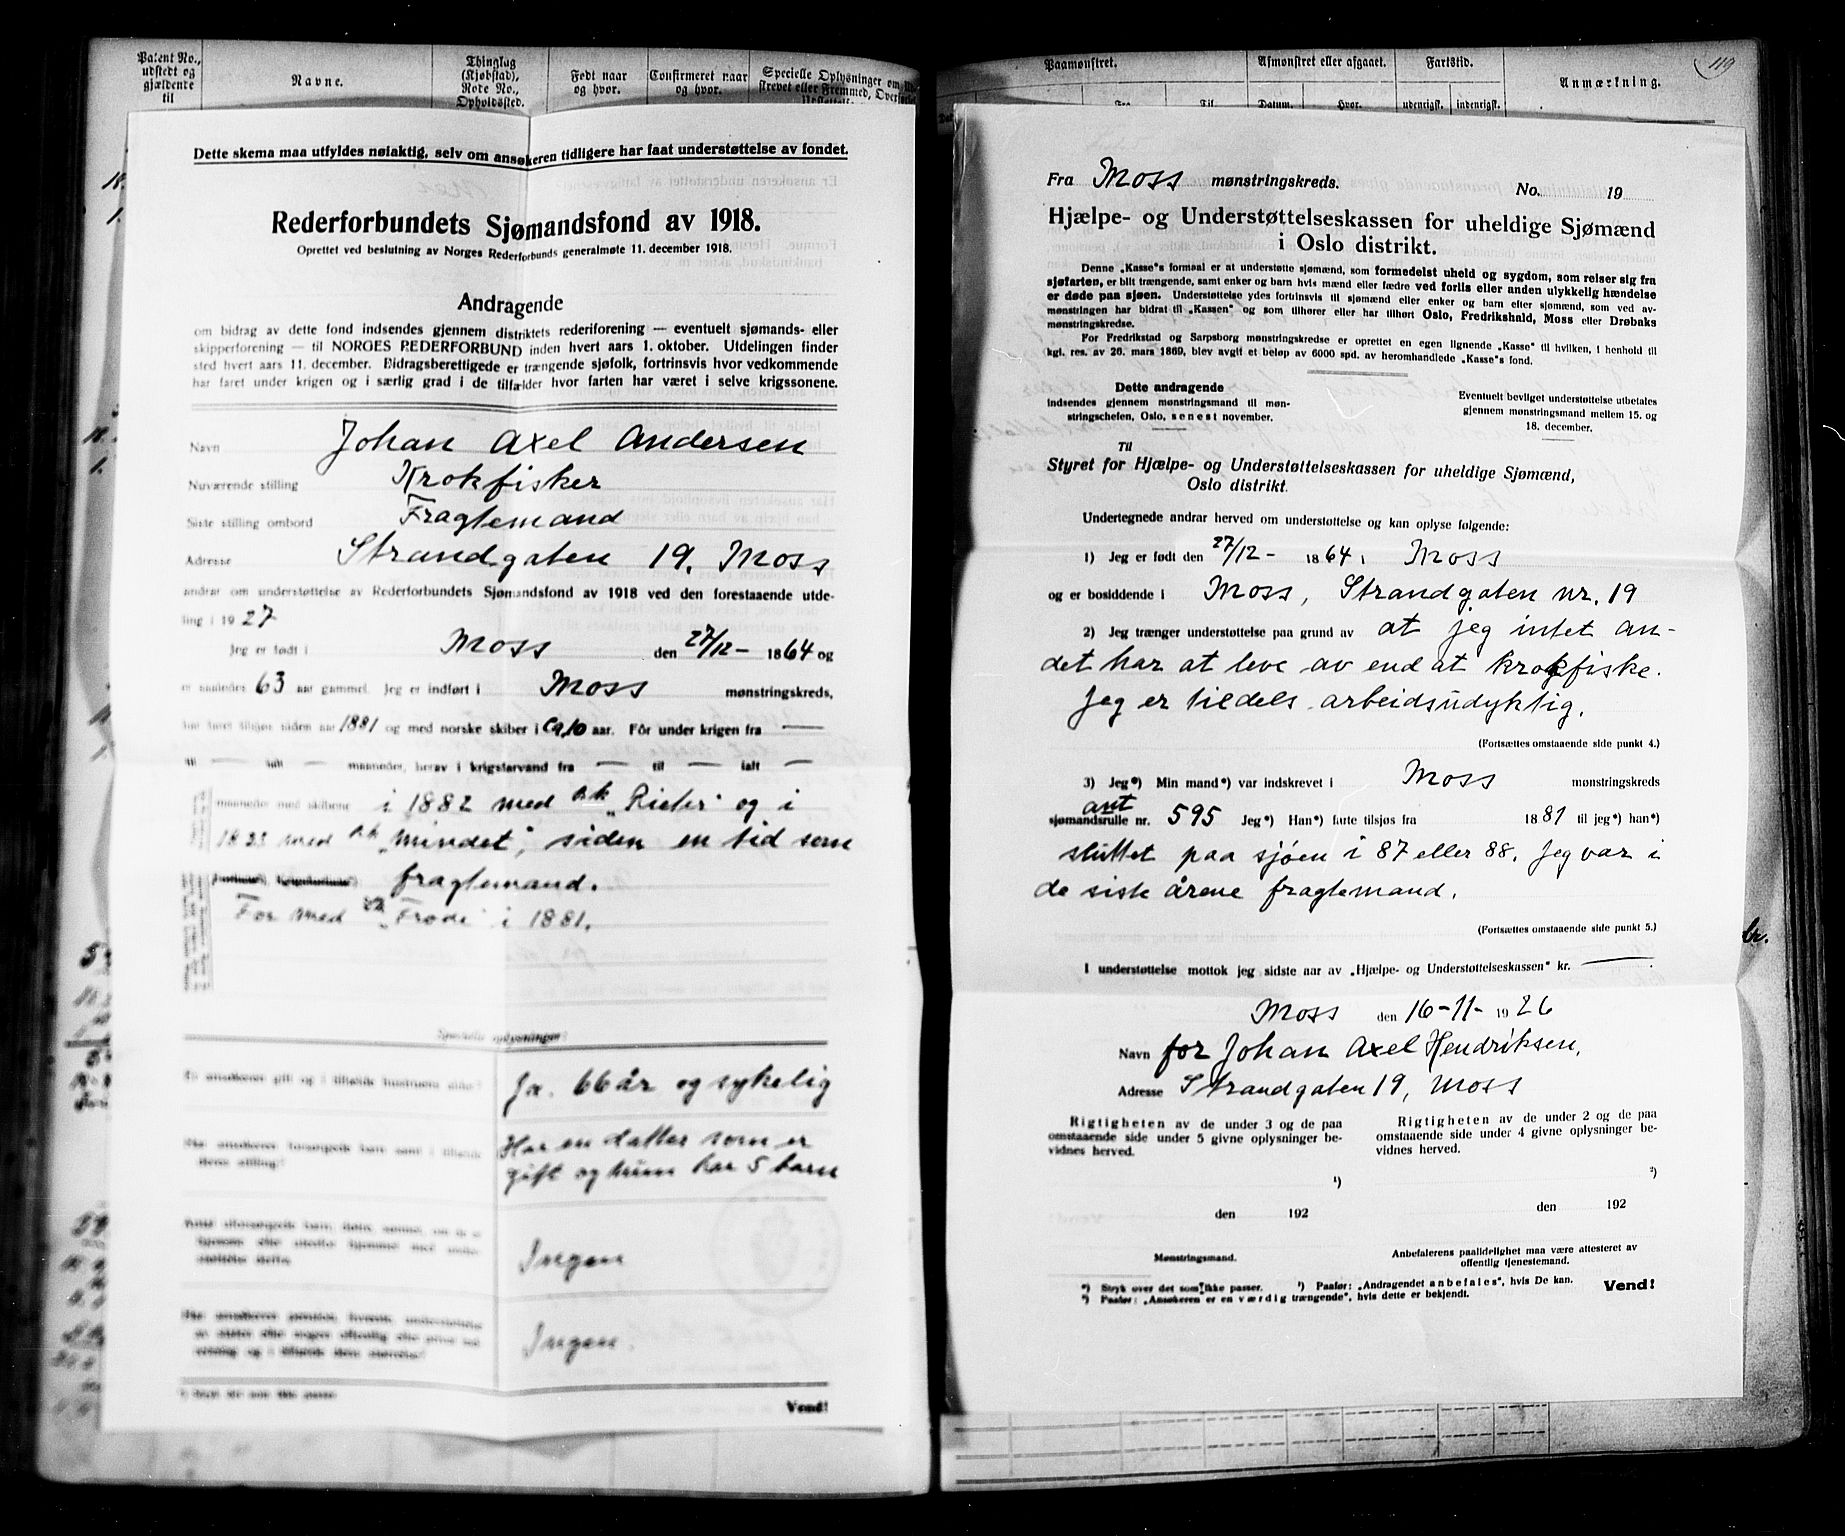 Patent No., udstedt og gjældende til
Navne.
Thinglag (Kjøbstad), Rode No., Opholdssted.
Født naar og hvor.
Confirmeret naar og hvor.
Dette skema maa utfyldes nøiaktig, selv om ansøkeren tidligere har faat understøttelse av fondet.
Rederforbundets Sjømandsfond av 1918.
Oprettet ved beslutning av Norges Rederforbunds generalmøte 11. december 1918.
Andragende
om bidrag av dette fond indsendes gjennem distriktets rederiforening — eventuelt sjømands- eller
skipperforening — til NORGES REDERFORBUND inden hvert aars 1. oktober. Utdelingen finder
sted hvert aars 11. december. Bidragsberettigede er trængende sjøfolk, fortrinsvis hvor vedkommende
har faret under krigen og i særlig grad i de tilfælder hvor farten har været i selve krigssonene.
Navn Johan Axel Andersen
Nuværende stilling Krokfisker
Siste stilling ombord Fragtemand
Adresse Strandgaten 19, Moss
andrar om understøttelse av Rederforbundets Sjømandsfond av 1918 ved den forestaaende utde-
ling i 1927
Jeg er født i Moss den 27/12 - 1864 og
er saaledes 63 aar gammel. Jeg er indført i Moss mønstringskreds,
har faret tilsjøs siden aar 1881 og med norske skiber i ca. 10 aar. Fôr under krigen fra —
til — ialt — maaneder, herav i krigsfarvand fra — til — ialt —
maaneder med skibene i 1882 med og i
med "Mindet", siden en tid som
fragtemand.
For med "Frode" i 1881.
Specielle oplysninger:
Er ansøkeren gift og i tilfælde hustruens alder? Ja. 66 år og sykelig
Har en datter som er
gift og hun har 5 barn
Ingen
Ingen.
Vend!
Paamønstret.
Afmønstret eller afgaaet.
Fartstid.
Anmærkning.
119
Fra
Til
Datum.
Hvor.
udenrigsk.
indenrigsk.
Fra Moss mønstringskreds. No. 19
Hjælpe- og Understøttelseskassen for uheldige Sjømænd
i Oslo distrikt.
Denne „Kasse"s formaal er at understøtte sjømænd, som formedelst uheld og sygdom, som reiser sig fra
sjøfarten, er blit trængende, samt enker og barn hvis mænd eller fædre ved forlis eller anden ulykkelig hændelse
er døde paa sjøen. Understøttelse ydes fortrinsvis til sjømænd eller enker og barn efter sjømænd, som ved av-
mønstringen har bidrat til „Kassen" og som tilhører eller har tilhørt Oslo, Fredrikshald, Moss eller Drøbaks
mønstringskredse.
For Fredrikstad og Sarpsborg mønstringskredse er oprettet en egen lignende „Kasse" til hvilken, i henhold til
kgl. res. av 20. mars 1869, blev avgit et beløp av 6000 spd. av heromhandlede „Kasse"s fond.
Dette andragende
indsendes gjennem mønstringsmand til møn-
stringschefen, Oslo, senest november.
Eventuelt bevilget understøttelse utbetales
gjennem mønstringsmand mellem 15. og
18. december.
Til
Styret for Hjælpe- og Understøttelseskassen for uheldige Sjømænd,
Oslo distrikt.
Undertegnede andrar herved om understøttelse og kan oplyse følgende:
1) Jeg er født den 27/12 - 1864 i Moss
og er bosiddende i Moss, Strandgaten nr. 19
2) Jeg trænger understøttelse paa grund av at jeg intet an-
det har at leve av end at krokfiske.
Jeg er tildels arbeidsudyktig.
(Fortsættes omstaaende side punkt 4.)
3) Jeg*) Min mand*) var indskrevet i Moss mønstringskreds
ant
sjømandsrulle nr. 595 Jeg*) Han*) farte tilsjøs fra 1881 til jeg*) han*)
sluttet paa sjøen i 87 eller 88. Jeg var i
de siste årene fragtemand.
(Fortsættes omstaaende side punkt 5.)
I understøttelse mottok jeg sidste aar av „Hjælpe- og Understøttelseskassen" kr. —
Moss den 16-11- 1926
Navn for Johan Axel Hendriksen,
Adresse Strandgaten 19, Moss
Rigtigheten av de under 3 og de paa
omstaaende side under 5 givne oplysninger be-
vidnes herved.
¹)
den 192
Mønstringsmand.
Rigtigheten av de under 2 og de paa
omstaaende side under 4 givne oplysninger be-
vidnes herved.
²)
den 192
Anbefalerens paalidelighet maa være attesteret av
offentlig tjenestemand.
*) Stryk over det som ikke passer. ¹) Paafør: „Andragendet anbefales", hvis De kan.
²) Paafør: „Ansøkeren er en værdig trængende", hvis dette er bekjendt.
Vend!